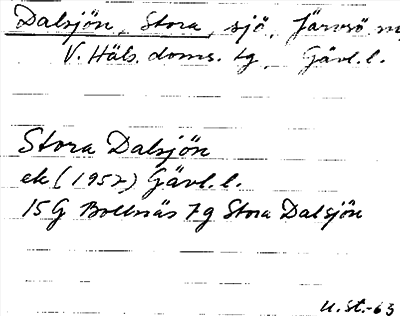 Dalsjön, Stora, sjö, Järvsö
V. Häls. doms. tg, Gävl.l.
Stora Dalsjön
ek (1957) Gävl.l.
15G Bollnäs 7g Stora Dalsjön
U.St.-63